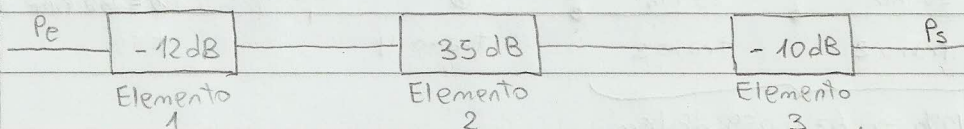 Pe -12dB 35dB -10dB Ps
Elemento Elemento Elemento
1 2 3